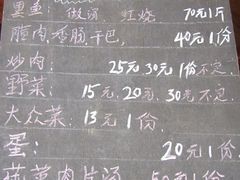 黑鱼: 做汤、红烧 70元1斤
腊肉香肠干巴, 40元1份
炒肉: 25元 30元1份不定.
野菜: 15元.20元. 30元不定.
大众菜: 13元1份.
蛋: 20元1份
蔬菜肉片汤 50元1份